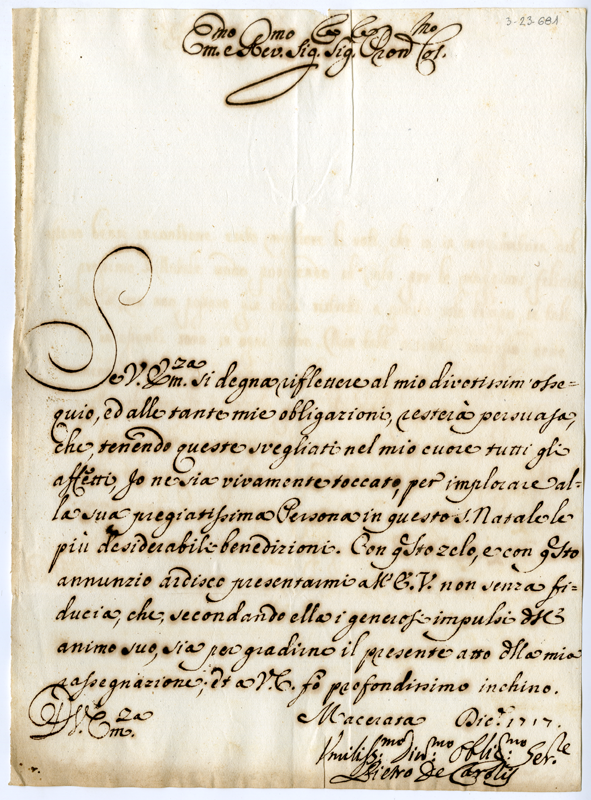 3-23-681
Em.mo e Rev.mo Sig. Sig. Pron. Col.mo
Se V. Em.za si degna riflettere al mio divotissim' osse=
quio, ed alle tante mie obligazioni, resterà persuasa,
che, tenendo queste svegliati nel mio cuore tutti gli
affetti, Io ne sia vivamente toccato, per implorare al=
la sua pregiatissima Persona in questo S. Natale le
più desiderabili benedizioni. Con q.sto zelo, e con q.sto
annunzio ardisco presentarmi all' E.V. non senza fi=
ducia, che, secondando ella i generosi impulsi dell'
animo suo, sia per gradirne il presente atto della mia
rassegnazione; et a V.E. fò profondissimo inchino.
D. V. Em.za Macerata Dic.e 1717.
Umiliss.mo Div.mo Oblig.mo Ser.re
Pietro De Carolis